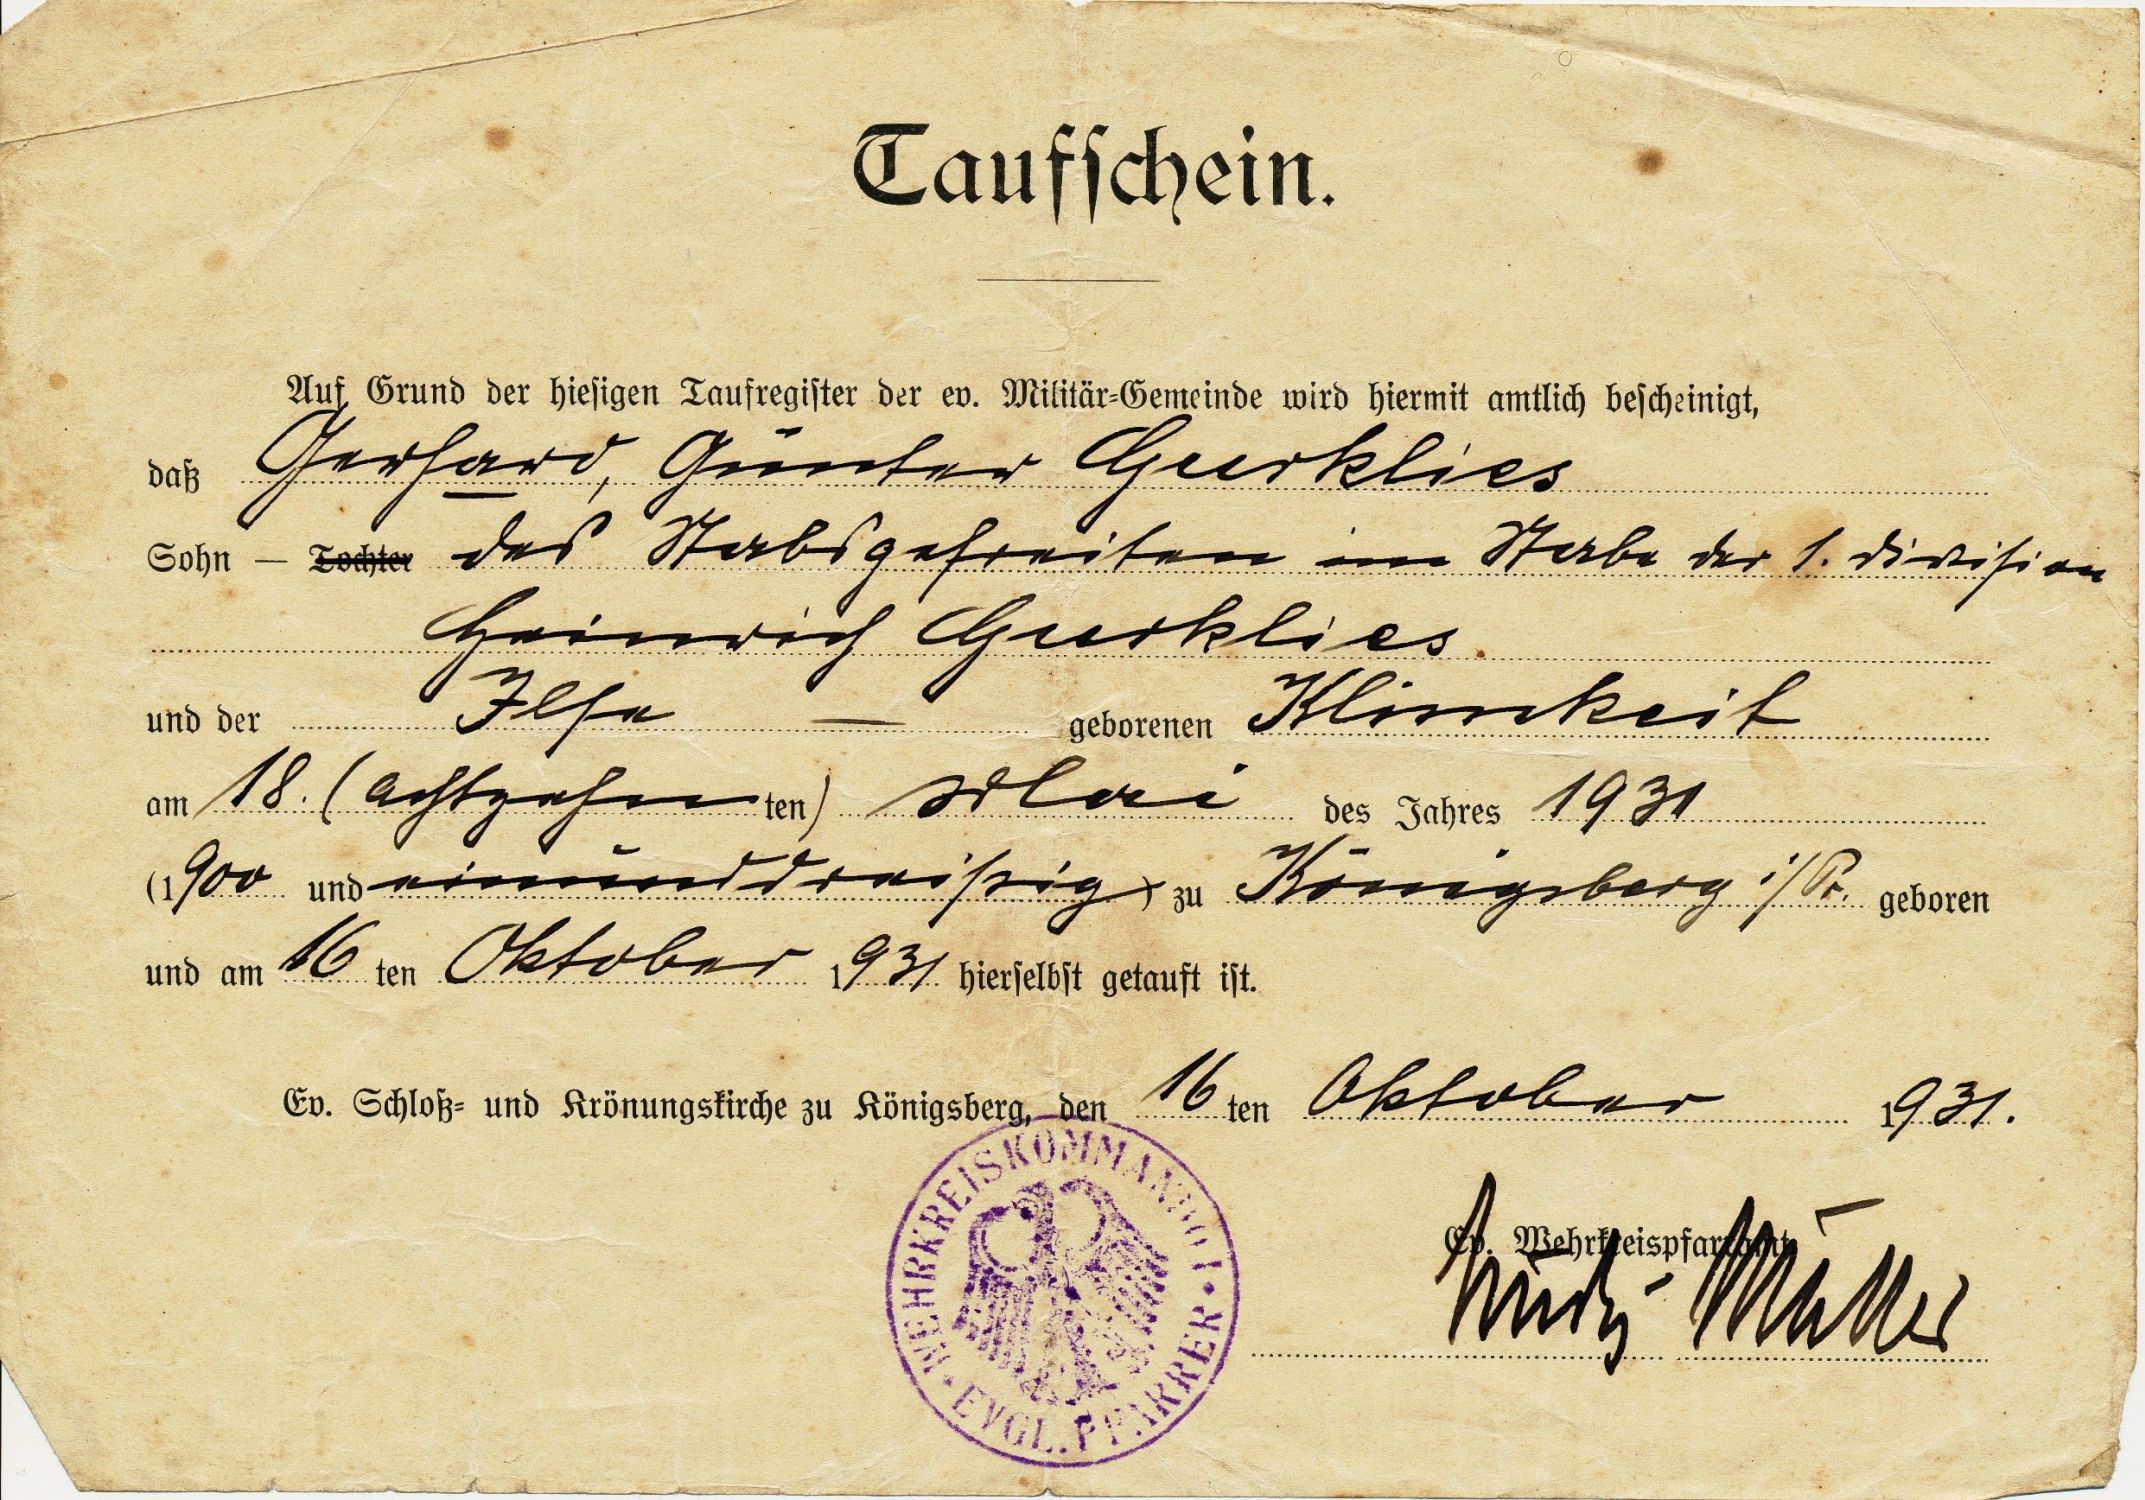 Taufschein.
Auf Grund der hiesigen Taufregister der ev. Militär-Gemeinde wird hiermit amtlich bescheinigt,
daß Gerhard, Günter Gurklies
Sohn — Tochter des Stabsgefreiten im Stabe der 1. Division
Heinrich Gurklies.
und der Ilse — geborenen Klimkeit
am 18. (achtzehnten) Mai des Jahres 1931
(1900 und einunddreißig) zu Königsberg i/Pr. geboren
und am 16ten Oktober 1931 hierselbst getauft ist.
Ev. Schloß- und Krönungskirche zu Königsberg, den 16ten Oktober 1931.
WEHRKREISKOMMANDO I · EVGL. PFARRER ·
Ev. Wehrkreispfarramt
Müller